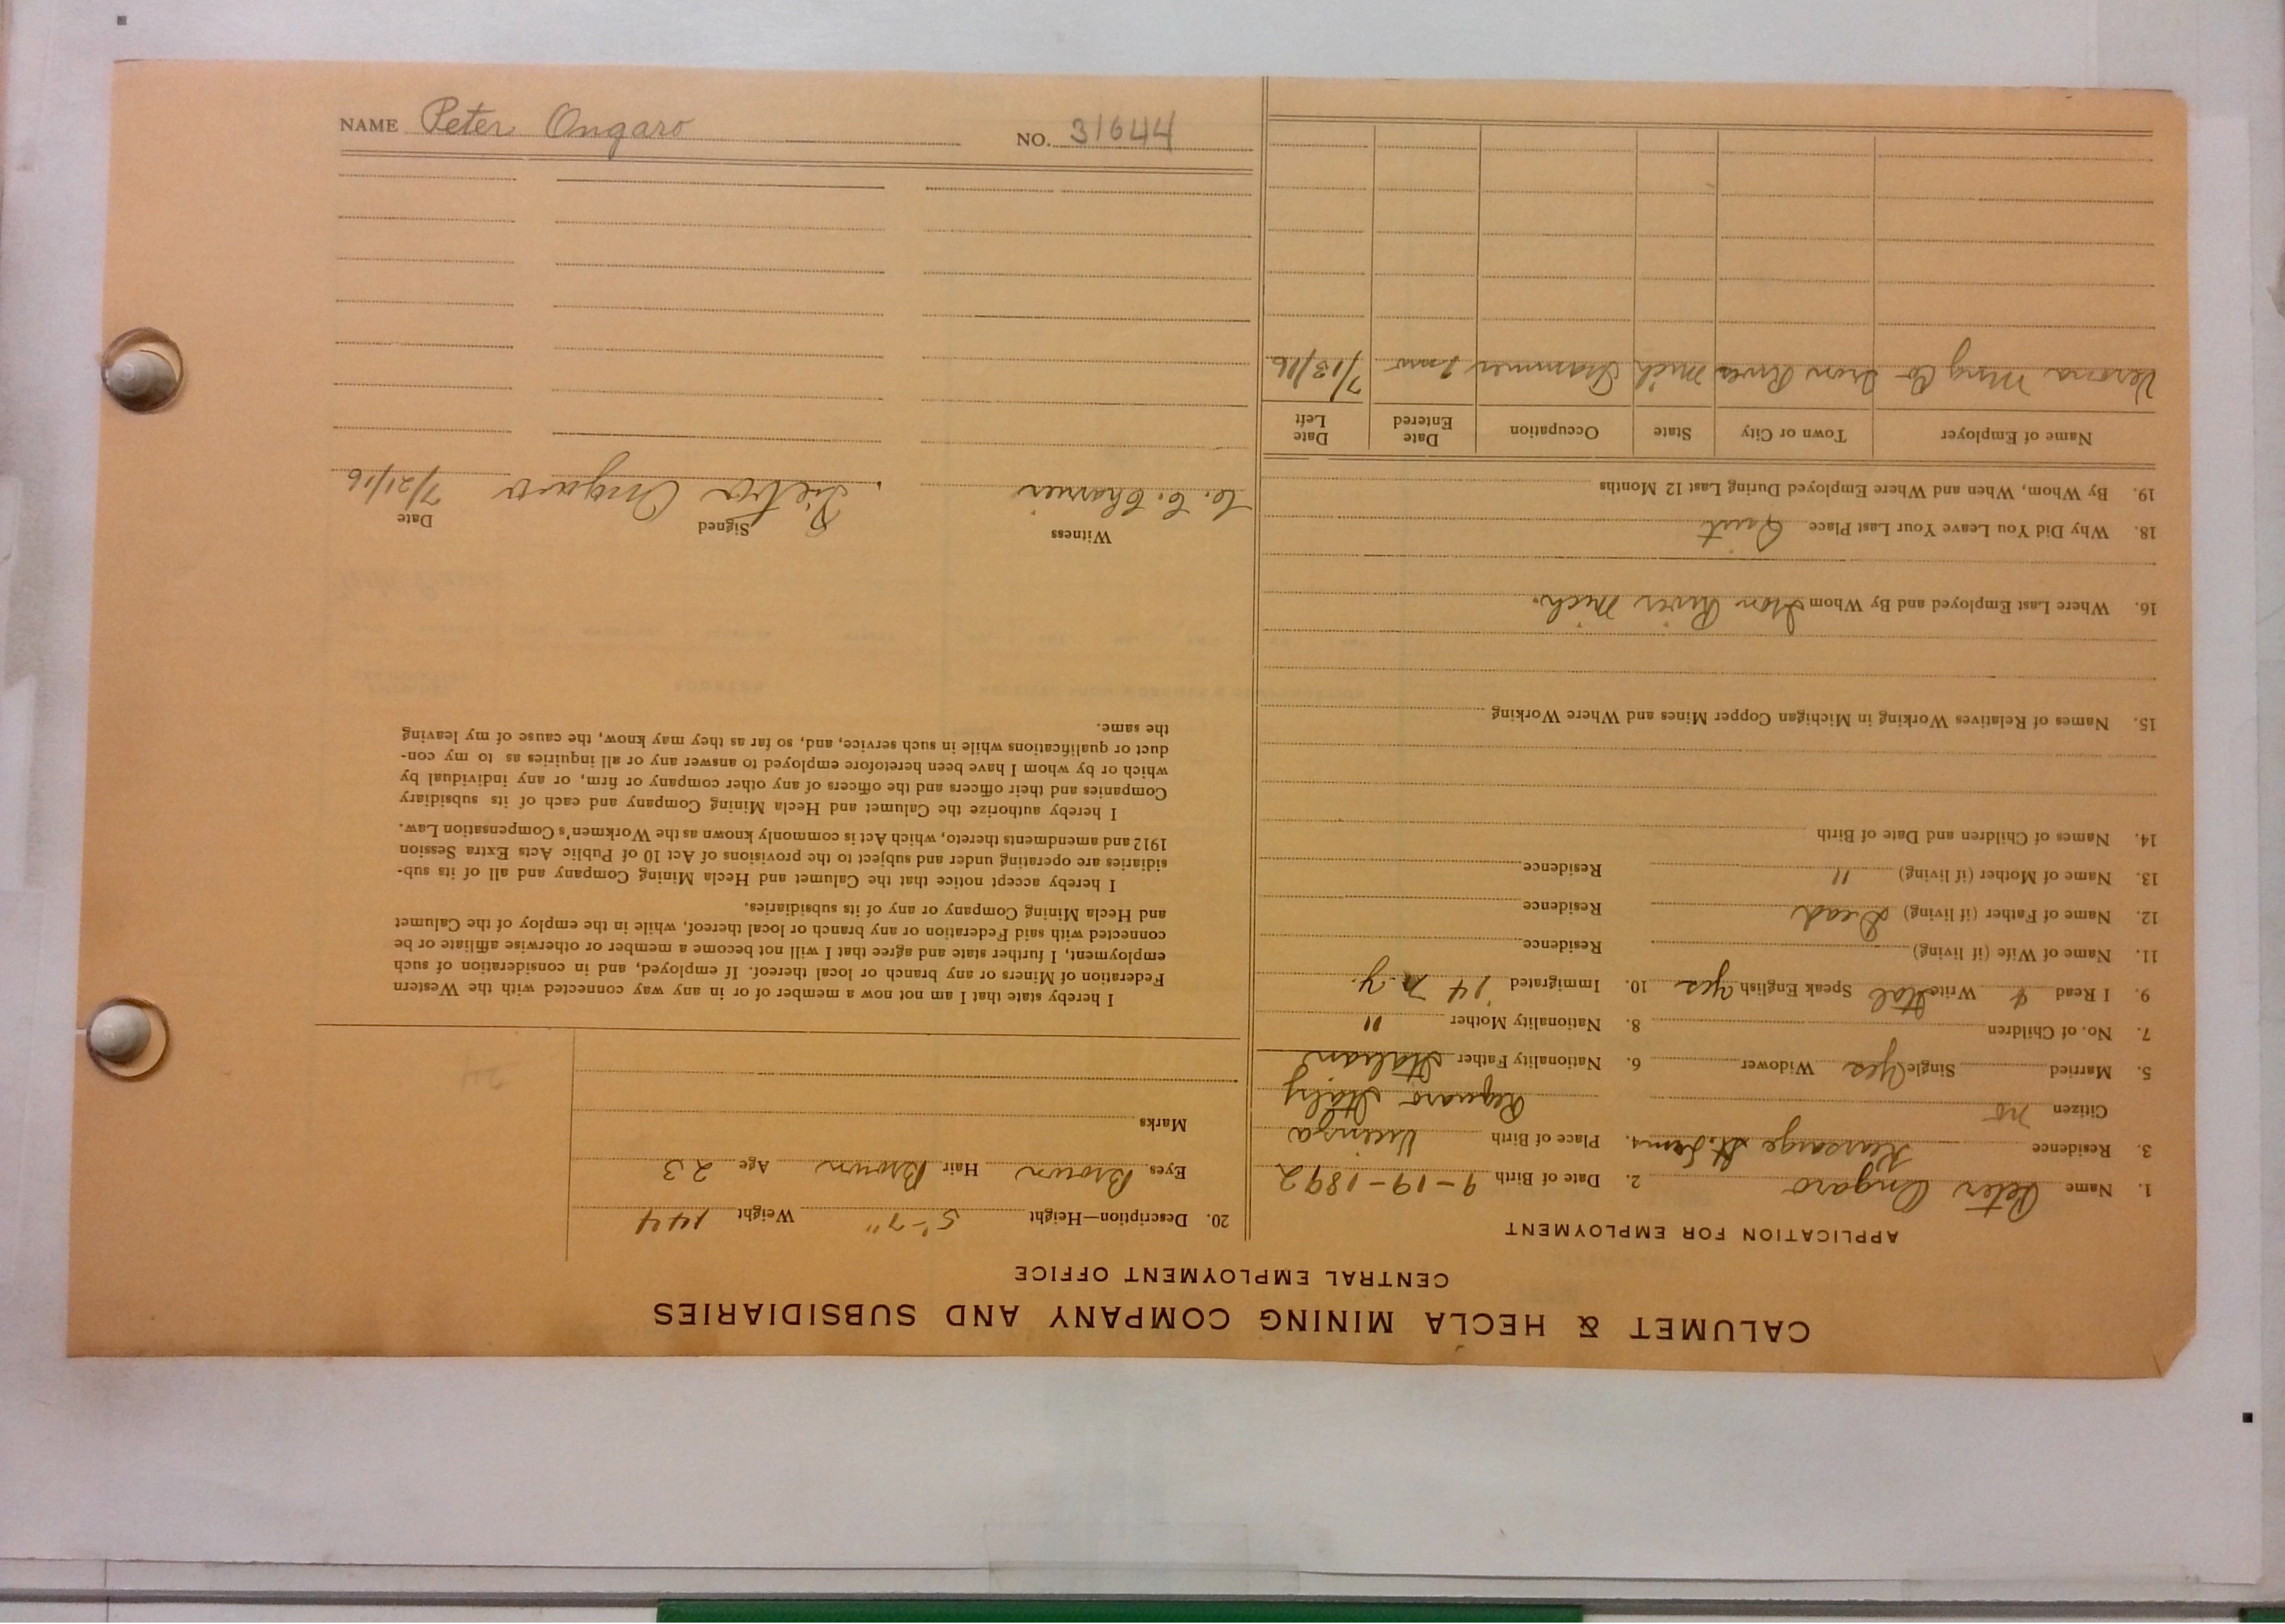 NAME Peter Ongaro NO. 31644
CALUMET & HECLA MINING COMPANY AND SUBSIDIARIES
CENTRAL EMPLOYMENT OFFICE
APPLICATION FOR EMPLOYMENT
1. Name Peter Ongaro 2. Date of Birth 9-19-1892
3. Residence Kearsarge 4. Place of Birth
Citizen no Italy
5. Married Single Yes Widower 6. Nationality Father Italian
7. No. of Children 8. Nationality Mother "
9. I Read & Write Ital Speak English yes 10. Immigrated '14 N.Y.
11. Name of Wife (if living) Residence
12. Name of Father (if living) Dead Residence
13. Name of Mother (if living) " Residence
14. Names of Children and Date of Birth
15. Names of Relatives Working in Michigan Copper Mines and Where Working
16. Where Last Employed and By Whom Iron River Mich.
18. Why Did You Leave Your Last Place Quit
19. By Whom, When and Where Employed During Last 12 Months
Name of Employer Town or City State Occupation Date Entered Date Left
Verona Mng Co Iron River Mich Trammer 7/13/16
20. Description—Height 5'-7" Weight 144
Eyes Brown Hair Brown Age 23
Marks
I hereby state that I am not now a member of or in any way connected with the Western
Federation of Miners or any branch or local thereof. If employed, and in consideration of such
employment, I further state and agree that I will not become a member or otherwise affiliate or be
connected with said Federation or any branch or local thereof, while in the employ of the Calumet
and Hecla Mining Company or any of its subsidiaries.
I hereby accept notice that the Calumet and Hecla Mining Company and all of its sub-
sidiaries are operating under and subject to the provisions of Act 10 of Public Acts Extra Session
1912 and amendments thereto, which Act is commonly known as the Workmen's Compensation Law.
I hereby authorize the Calumet and Hecla Mining Company and each of its subsidiary
Companies and their officers and the officers of any other company or firm, or any individual by
which or by whom I have been heretofore employed to answer any or all inquiries as to my con-
duct or qualifications while in such service, and, so far as they may know, the cause of my leaving
the same.
Witness Signed Date
Pietro Ongaro 7/21/16